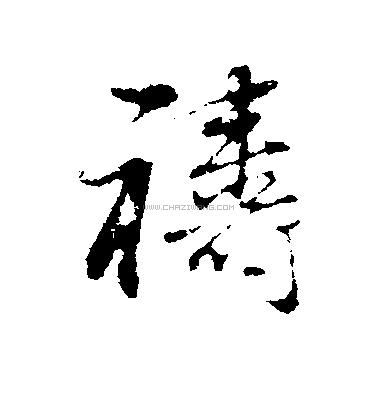 禱
WWW.CHAZIWANG.COM